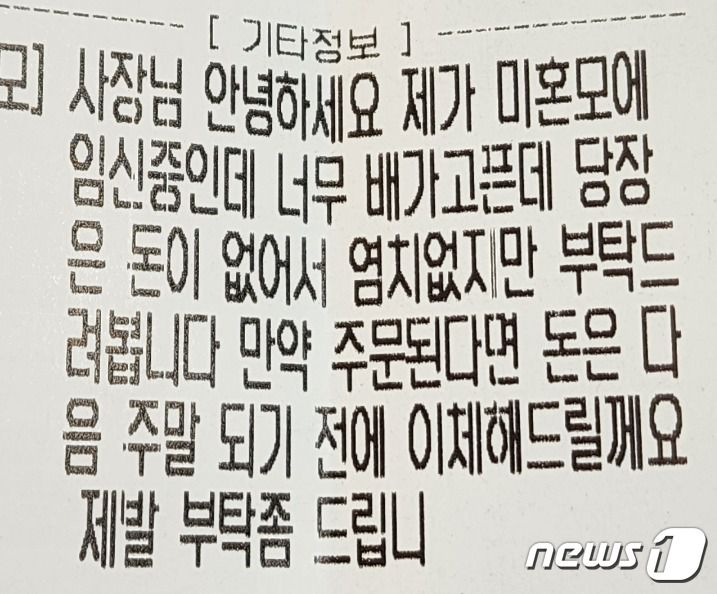 [ 기타정보 ]
모] 사장님 안녕하세요 제가 미혼모에
임신중인데 너무 배가고픈데 당장
은 돈이 없어서 염치없지만 부탁드
려봅니다 만약 주문된다면 돈은 다
음 주말 되기 전에 이체해드릴께요
제발 부탁좀 드립니
news1